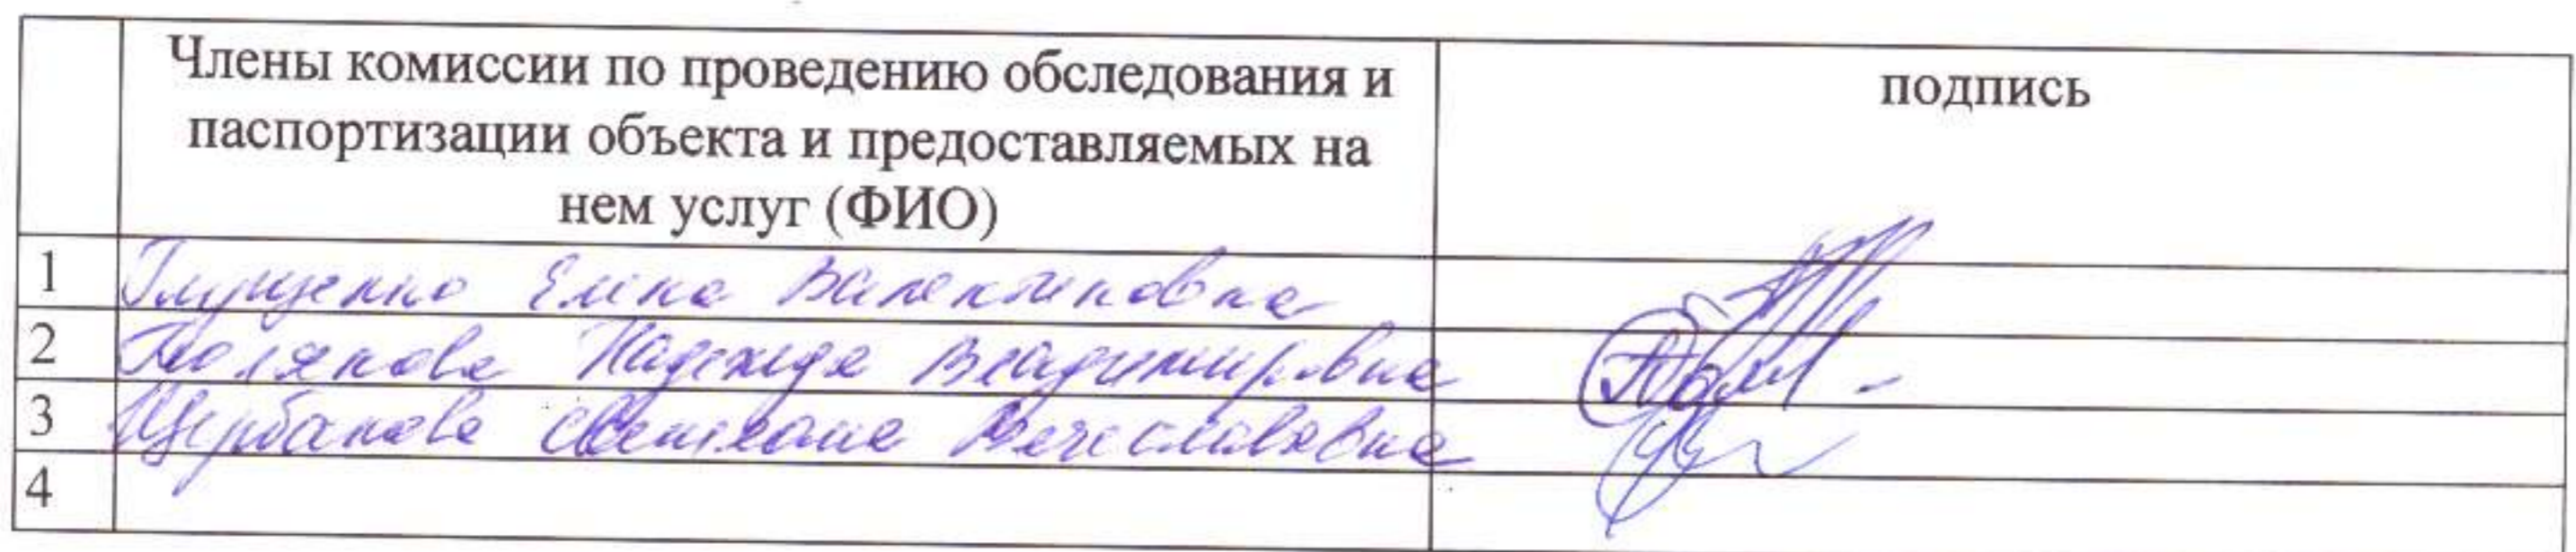 Члены комиссии по проведению обследования и
подпись
паспортизации объекта и предоставляемых на
нем услуг (ФИО)
1 Глущенко Елена Валентиновна
2 Полякова Надежда Владимировна
3 Щербакова Светлана Вячеславовна
4